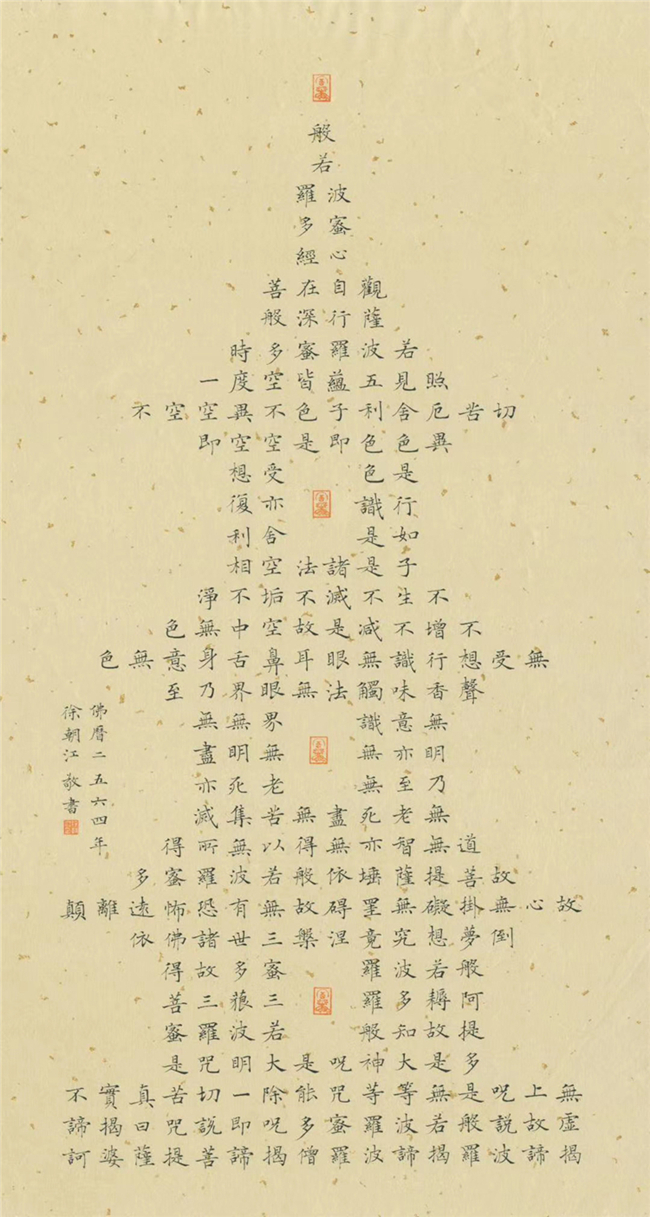 般
若
波羅
蜜多
心經
觀自在菩
薩行深般
若波羅蜜多時
照見五蘊皆空度一
切苦厄舍利子色不異空空不
異色色即是空空即
是色受想
行識亦復
如是舍利
子是諸法空相
不生不滅不垢不淨
不增不減是故空中無色
無受想行識無眼耳鼻舌身意無色
聲香味觸法無眼界乃至
無意識界無無
明亦無無明盡
乃至無老死亦
無老死盡無苦集滅
道無智亦無得以無所得
故菩提薩埵依般若波羅蜜多
故心無掛礙無罣碍故無有恐怖遠離顛
倒夢想究竟涅槃三世諸佛依
般若波羅蜜多故得
阿耨多羅三藐三菩
提故知般若波羅蜜
多是大神咒是大明咒是
無上咒是無等等咒能除一切苦真實不
虛故說般若波羅蜜多咒即說咒曰揭諦
揭諦波羅揭諦波羅僧揭諦菩提薩婆訶
佛曆二五六四年
徐朝江敬書